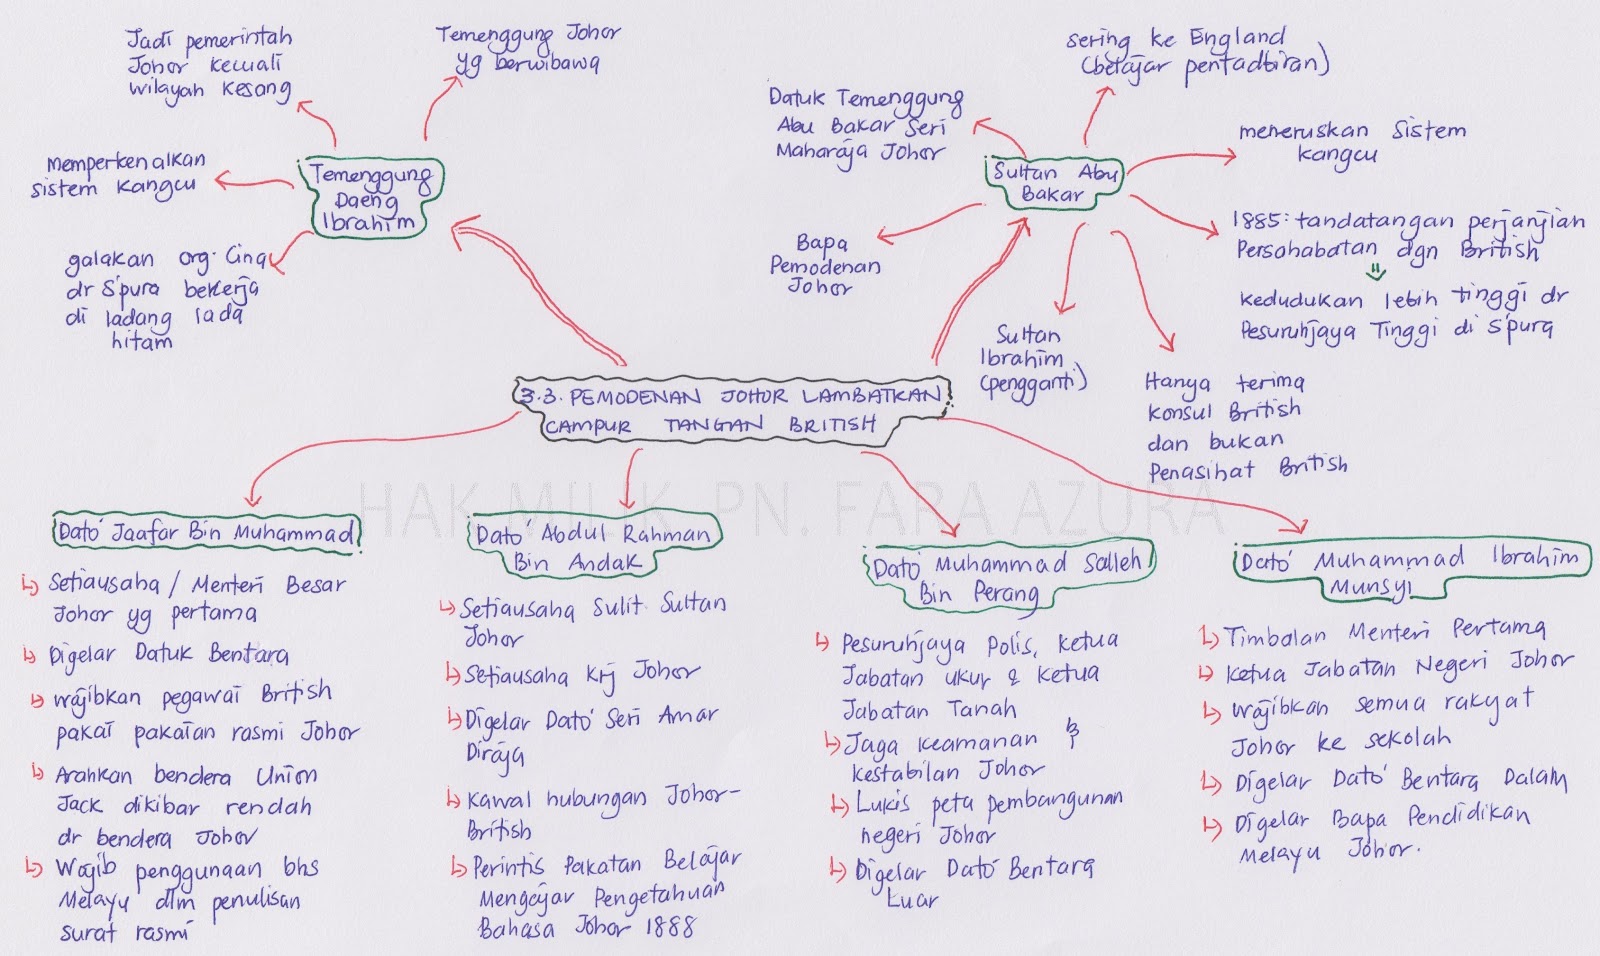 Jadi pemerintah
Johor kecuali
wilayah Kesang
Temenggung Johor
yg berwibawa
memperkenalkan
sistem Kangcu
Temenggung
Daeng
Ibrahim
galakan org. Cina
dr S'pura bekerja
di ladang lada
hitam
sering ke England
(belajar pentadbiran)
Datuk Temenggung
Abu Bakar Seri
Maharaja Johor
meneruskan sistem
kangcu
Sultan Abu
Bakar
1885: tandatangan perjanjian
Persahabatan dgn British
Kedudukan lebih tinggi dr
Pesuruhjaya Tinggi di S'pura
Bapa
Pemodenan
Johor
Sultan
Ibrahim
(pengganti)
Hanya terima
Konsul British
dan bukan
Penasihat British
3.3. PEMODENAN JOHOR LAMBATKAN
CAMPUR TANGAN BRITISH
HAK MILIK PN. FARA AZURA
Dato' Jaafar Bin Muhammad
Setiausaha / Menteri Besar
Johor yg pertama
Digelar Datuk Bentara
Wajibkan pegawai British
pakai pakaian rasmi Johor
Arahkan bendera Union
Jack dikibar rendah
dr bendera Johor
Wajib penggunaan bhs
Melayu dlm penulisan
surat rasmi
Dato' Abdul Rahman
Bin Andak
Setiausaha Sulit Sultan
Johor
Setiausaha Krj Johor
Digelar Dato' Seri Amar
Diraja
Kawal hubungan Johor-
British
Perintis Pakatan Belajar
Mengajar Pengetahuan
Bahasa Johor 1888
Dato' Muhammad Salleh
Bin Perang
Pesuruhjaya Polis, Ketua
Jabatan ukur & Ketua
Jabatan Tanah
Jaga keamanan &
kestabilan Johor
Lukis peta pembangunan
negeri Johor
Digelar Dato' Bentara
Luar
Dato' Muhammad Ibrahim
Munsyi
Timbalan Menteri Pertama
Ketua Jabatan Negeri Johor
Wajibkan semua rakyat
Johor ke sekolah
Digelar Dato' Bentara Dalam
Digelar Bapa Pendidikan
Melayu Johor.